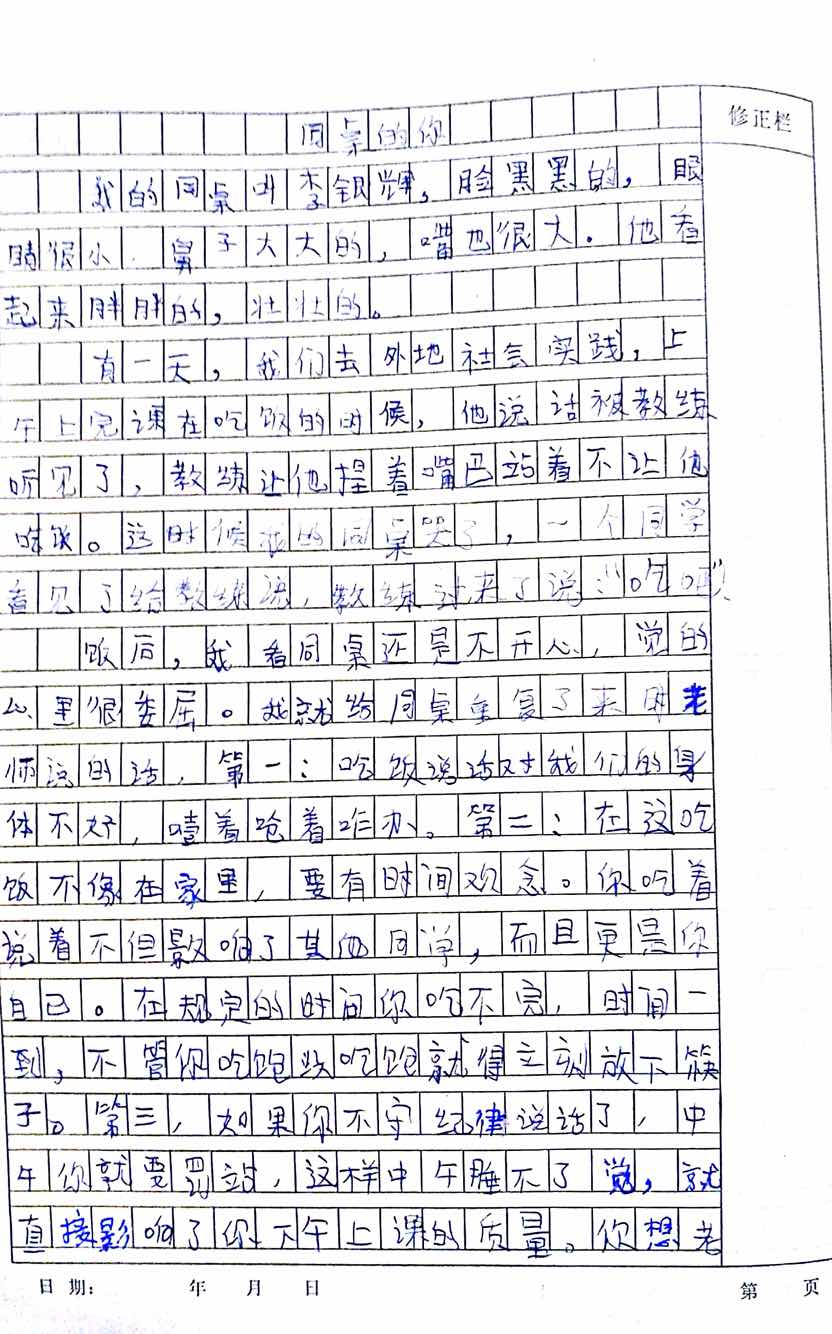 同桌的你
修正栏
我的同桌叫李银辉，脸黑黑的，眼
睛很小，鼻子大大的，嘴也很大。他看
起来胖胖的，壮壮的。
有一天，我们去外地社会实践，上
午上完课在吃饭的时候，他说话被教练
听见了，教练让他捏着嘴巴站着不让他
吃饭。这时候我的同桌哭了，一个同学
看见了给教练说，教练过来了说：“吃吧”
饭后，我看同桌还是不开心，觉的
心里很委屈。我就给同桌重复了来时老
师说的话，第一：吃饭说话对我们的身
体不好，噎着呛着咋办。第二：在这吃
饭不像在家里，要有时间观念。你吃着
说着不但影响了其他同学，而且更是你
自己。在规定的时间你吃不完，时间一
到，不管你吃饱没吃饱就得立刻放下筷
子。第三，如果你不守纪律说话了，中
午你就要罚站，这样中午睡不了觉，就
直接影响了你下午上课的质量。你想老
日期： 年 月 日
第 页